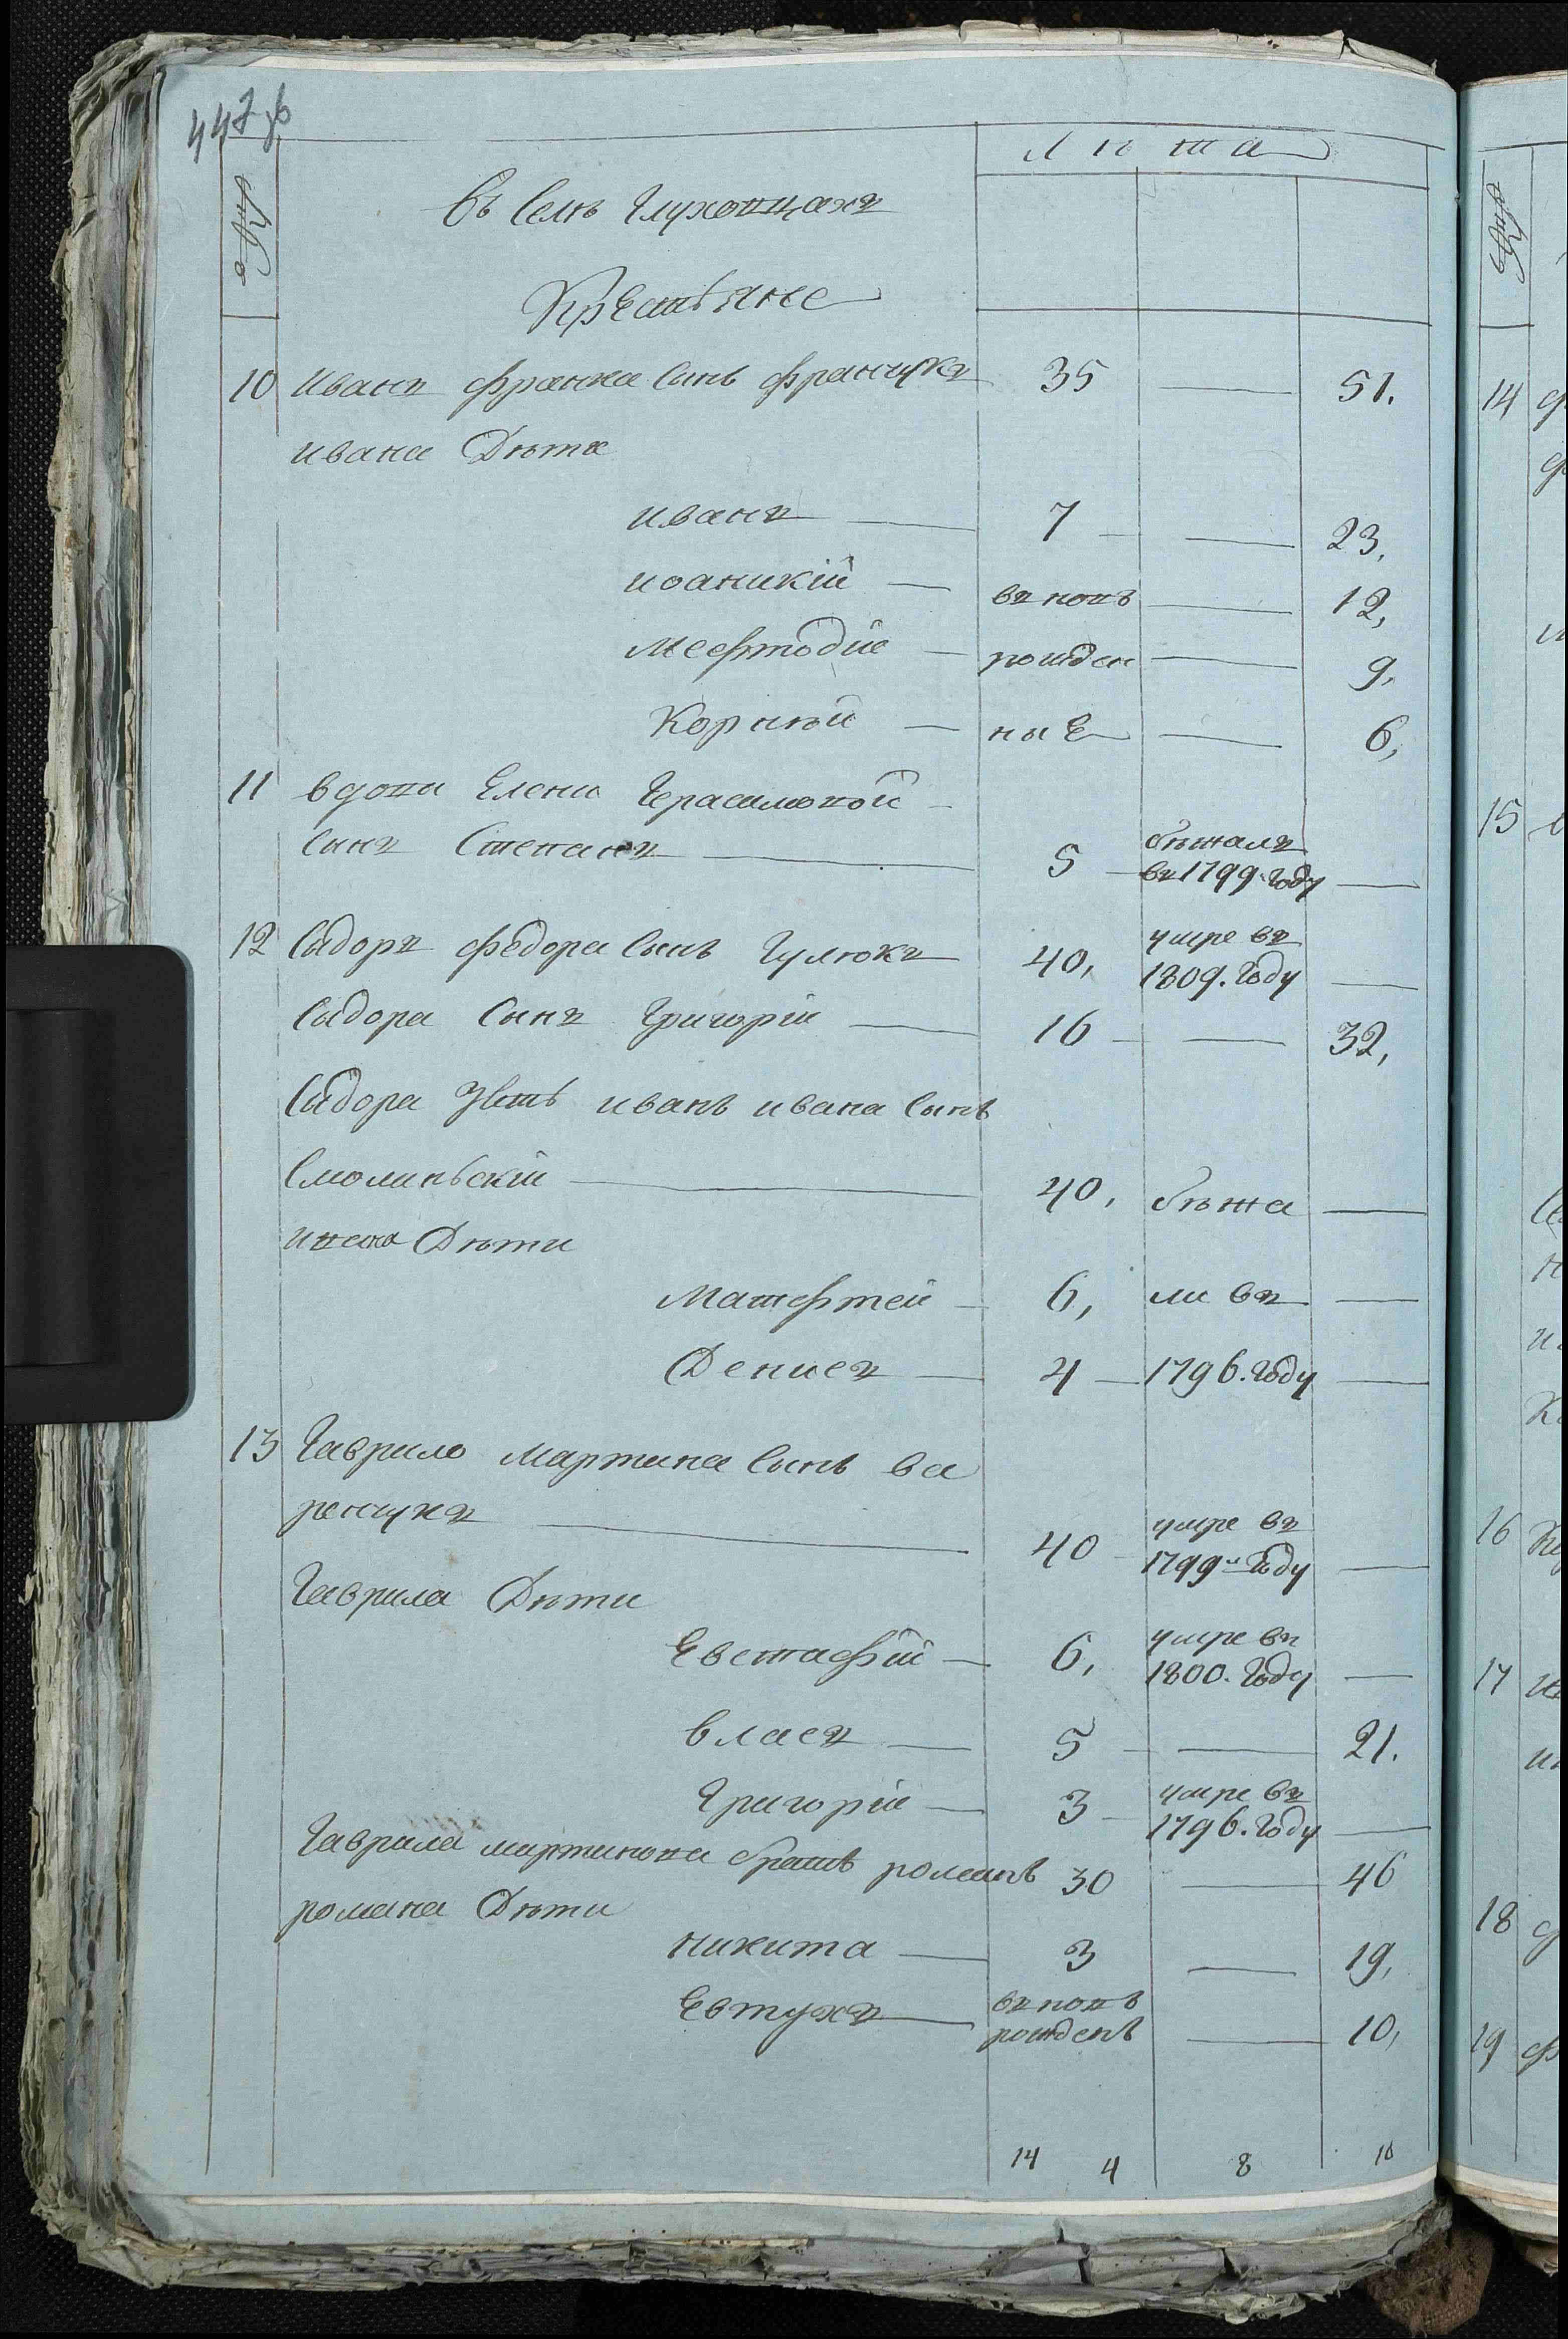 447 об
Лѣта
Въ Селѣ Глуховцахъ
Крестьяне
10 Иванъ франка Сынъ франчукъ 35 — 51.
Ивана Дѣти
Иванъ — 7 — 23,
иоаникій — въ новь — 12,
Мефтодій — рожден — 9,
Корнѣй — ныЕ — 6,
11 вдови Елени Герасимовой
Сынъ Степанъ — 5 — бѣжалъ въ 1799. Году —
12 Сидоръ федора Сынъ Гулюкъ 40, умре въ 1809. Году —
Сидора Сынъ Григорій — 16 — 32,
Сидора Зять иванъ ивана Сынъ
Смолиньскій — 40, бѣжа —
ивана Дѣти
Матфтей — 6, ли въ —
Денисъ — 4 — 1796. Году —
13 Гаврило Мартина Сынъ ва
ренчукъ — 40 умре въ 1799м Году —
Гаврила Дѣти
Евстафій — 6, умре въ 1800. Году —
власъ — 5 — 21.
Григорій — 3 — умре въ 1796. Году —
Гаврила мартинова братъ романъ 30 — 46
романа Дѣти
никита — 3 — 19,
Евтухъ — въ новь рожденъ — 10,
14 4 8 10
14
15
16
17
18
19